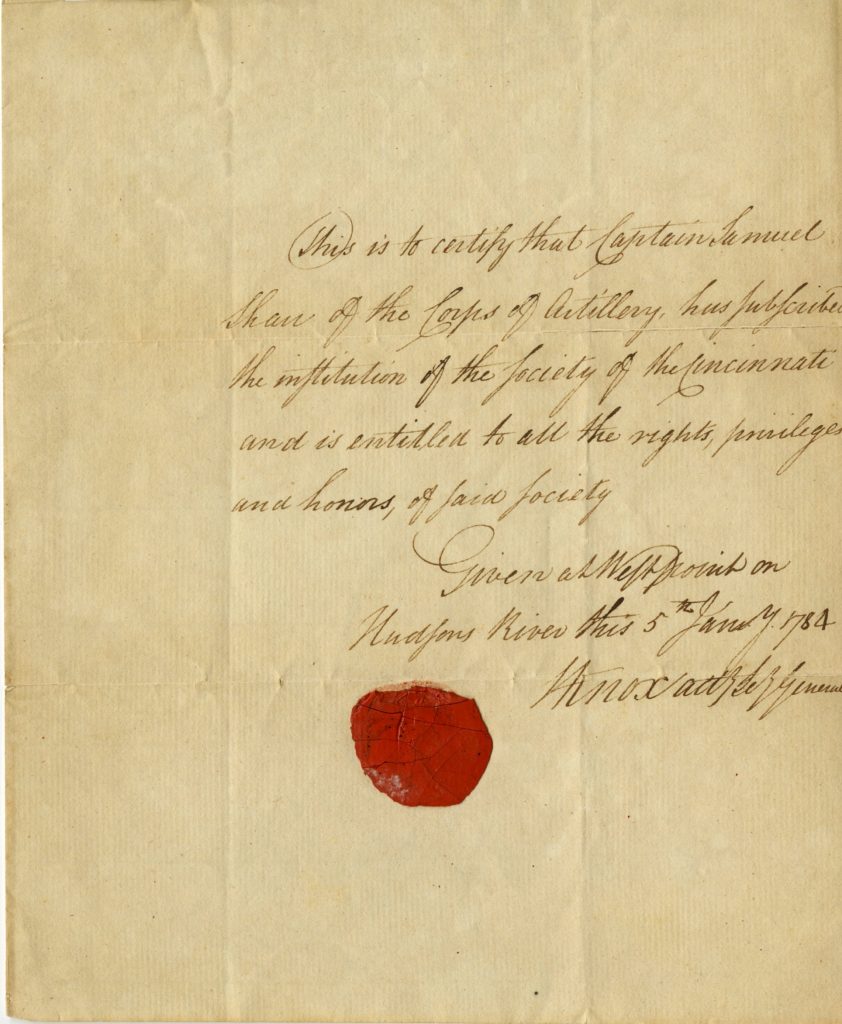 This is to certify that Captain Samuel
Shaw of the Corps of Artillery, has subscribed
the institution of the Society of the Cincinnati
and is entitled to all the rights, privileges
and honors, of said society
Given at West point on
Hudsons River this 5th Jany. 1784
HKnox General